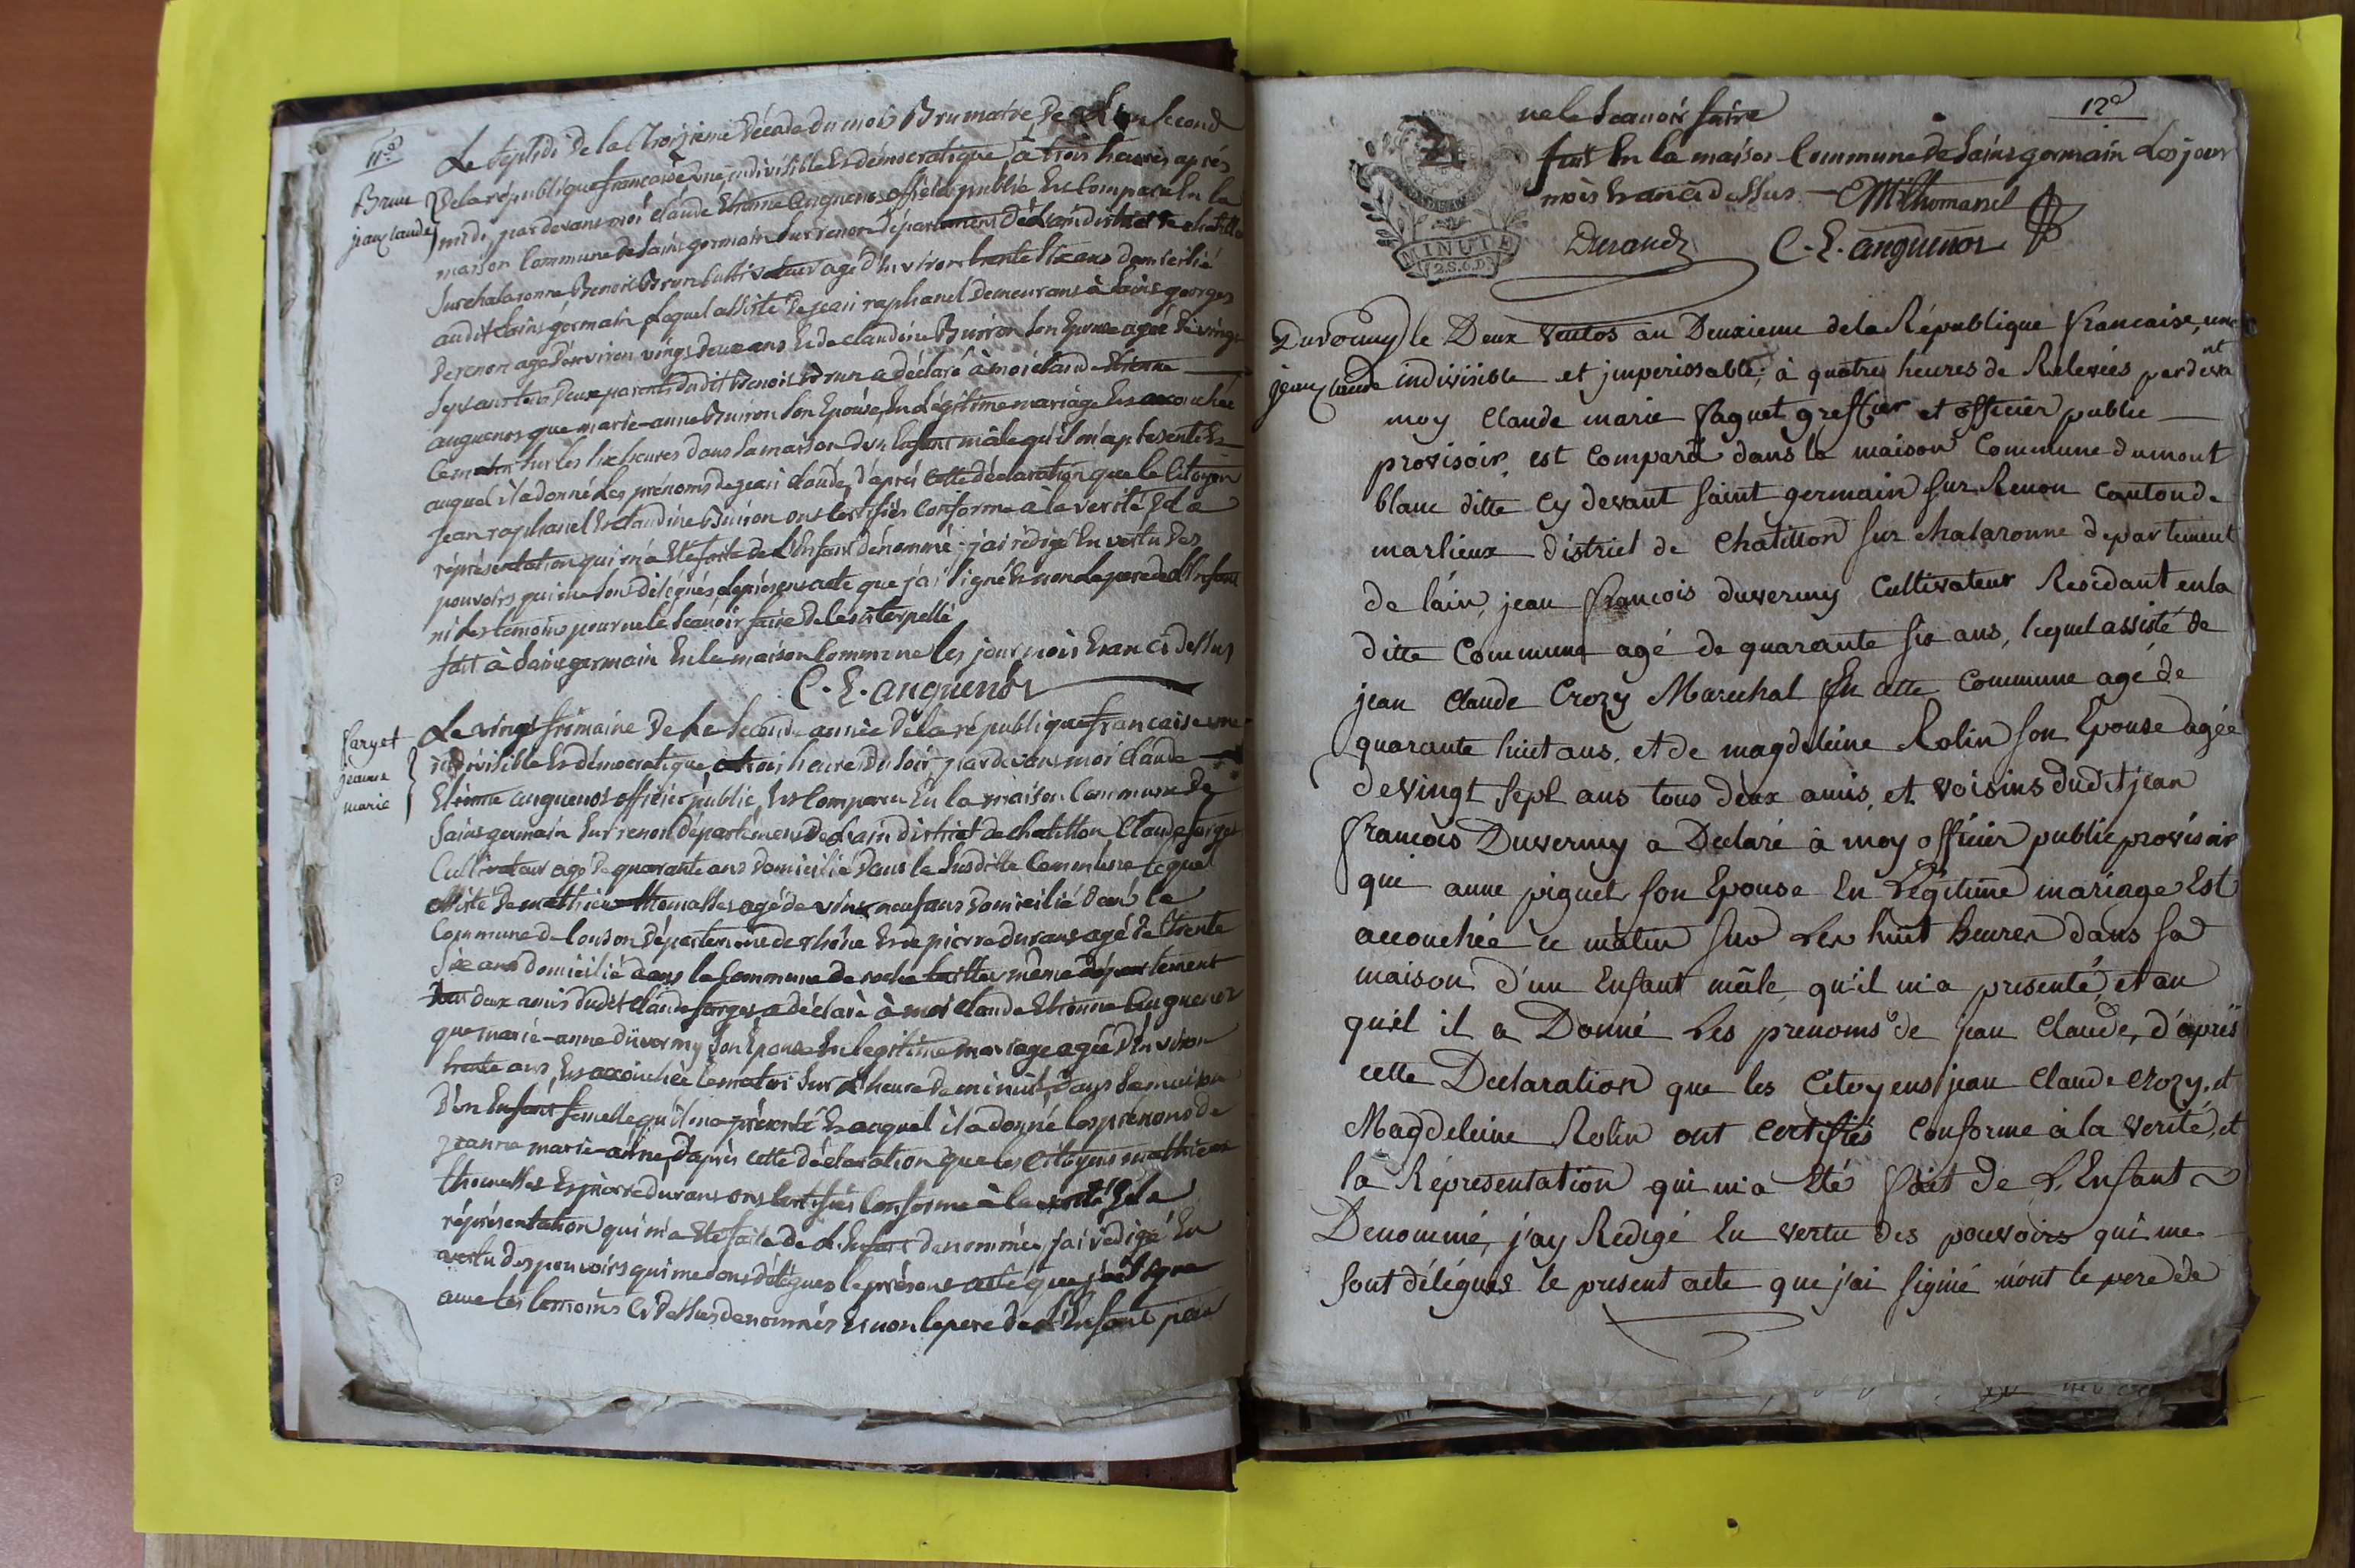 11e
Brun
jean claude
Le septidi de la troisieme décade du mois Brumaire de L'an second
de la république francaise une indivisible Et démocratique, à trois heures après
midi, par devant moi claude Etienne anguenos officier public Est Comparu En la
maison Commune de saint germain sur renon département de L'ain district de chatillon
sur chalaronne Benoit Brun Cultivateur agé d'Environ trente six ans domicilié
audit saint germain Lequel assisté de jean raphanel demeurant à saint georges
de renon agé d'environ vingt deux ans Et de claudine Buiron son Epouse agée de vingt
sept ans tous deux parents dudit Benoit Brun a déclaré à moi claude Etienne
anguenos que marie-anne Buiron son Epouse En Légitime mariage Est accouchée
ce matin sur les six heures dans sa maison d'un Enfant mâle qu'il m'a présenté Et
auquel il a donné Les prénoms de jean claude, d'après cette déclaration que le Citoyen
jean raphanel Et claudine Buiron ont certifiés conforme à la verité Et la
réprésentation qui m'a Eté faite de L'Enfant dénommé j'ai rédigé En vertu des
pouvoirs qui me sont délégués le présent acte que j'ai signé Et non le pere de L'Enfant
ni Les temoins pour ne le scavoir faire de Ce interpellé
fait à saint germain En la maison Commune les jour mois Et an ci dessus
C. E. anguenos
farget
jeanne
marie
Le vingt frimaire de la seconde année de la république francaise une
indivisible Et démocratique, à trois heures du soir par devant moi claude
Etienne anguenos officier public, Est Comparu En la maison Commune de
saint germain sur renon département de L'ain district de chatillon Claude farget
Cultivateur agé de quarante ans domicilié dans la susditte Commune Lequel
assisté de mathieu thomasset agé de vingt neuf ans domicilié dans la
Commune de département de rhône Et de pierre durand agé de trente
six ans domicilié dans la Commune de même département
tous deux amis dudit claude farget, a déclaré à moi claude Etienne anguenos
que marie-anne duverny son Epouse En legitime mariage agée d'Environ
trente ans, Est accouchée ce matin sur L'heure de minuit, dans sa maison
d'un Enfant femelle qu'il m'a présenté Et auquel il a donné les prénoms de
jeanne marie-anne, d'après cette déclaration que les citoyens mathieu
thomasset Et pierre durand ont certifiés conforme à la verité Et la
réprésentation qui m'a Eté faite de L'Enfant denommée j'ai rédigé En
vertu des pouvoirs qui me sont délégués le présent acte que j'ai signé
avec les temoins ci dessus denommés Et non le pere de L'Enfant pour
12e
ne le scavoir faire
fait En la maison Commune de saint germain Les jour
mois Et an ci dessus. Mthomasset
Durand C. E. anguenos
MINUTE
2.S.6.D
Duverny
jean claude
le Deux Ventos an Deuxieme de la République francaise, une
indivisible et imperissable, à quatre heures de Relevées par devant
moy Claude marie Vaquet greffier et officier public
provisoir, est Comparu dans la maison Commune dumont
blanc ditte Cy devant saint germain sur Renon Canton de
marlieux district de Chatillon sur chalaronne departement
de lain, jean francois duverny Cultivateur Residant en la
ditte Commune agé de quarante six ans, lequel assisté de
jean Claude Crozy Marechal En cette Commune agé de
quarante huit ans, et de magdeleine Rolin son Epouse agée
de vingt sept ans tous deux amis, et voisins dudit jean
francois Duverny a Declaré à moy officier public provisoir
que anne piquet son Epouse En Légitime mariage Est
accouchée ce matin sur Les huit heures dans sa
maison d'un Enfant mâle qu'il m'a presenté, et au
quel il a Donné Les prenoms de jean Claude, d'après
cette Declaration que les Citoyens jean Claude Crozy, et
Magdeleine Rolin ont certifiés Conforme à la verité, et
la Répresentation qui m'a Eté fait de L'Enfant
Denommé, j'ay Redigé En vertu des pouvoirs qui me
sont délégués le present acte que j'ai signé n'ont le pere de